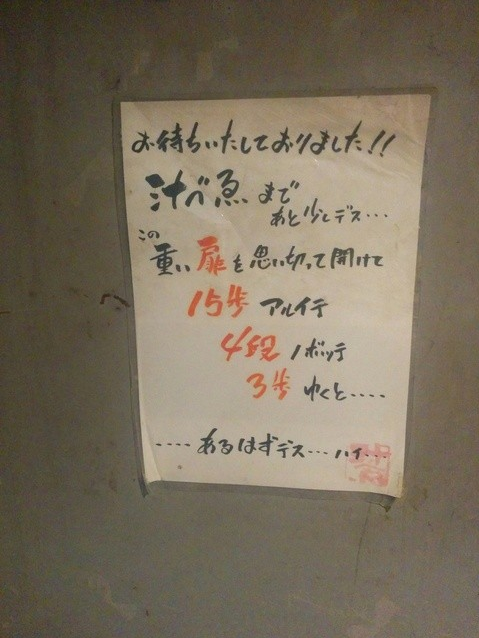 お待ちいたしておりました!!
汁べゑまで
あと少しデス・・・
この
重い扉を思い切って開けて
15歩アルイテ
4段ノボッテ
3歩ゆくと・・・・
・・・・あるはずデス・・・ハイ・・・